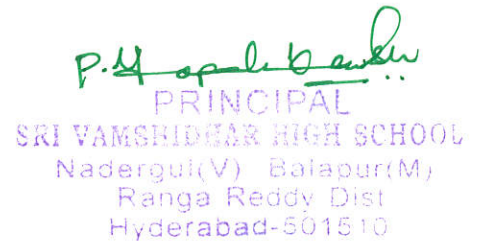 PRINCIPAL
SRI VAMSHIDHAR HIGH SCHOOL
Nadergul(V) Balapur(M)
Ranga Reddy Dist
Hyderabad-501510